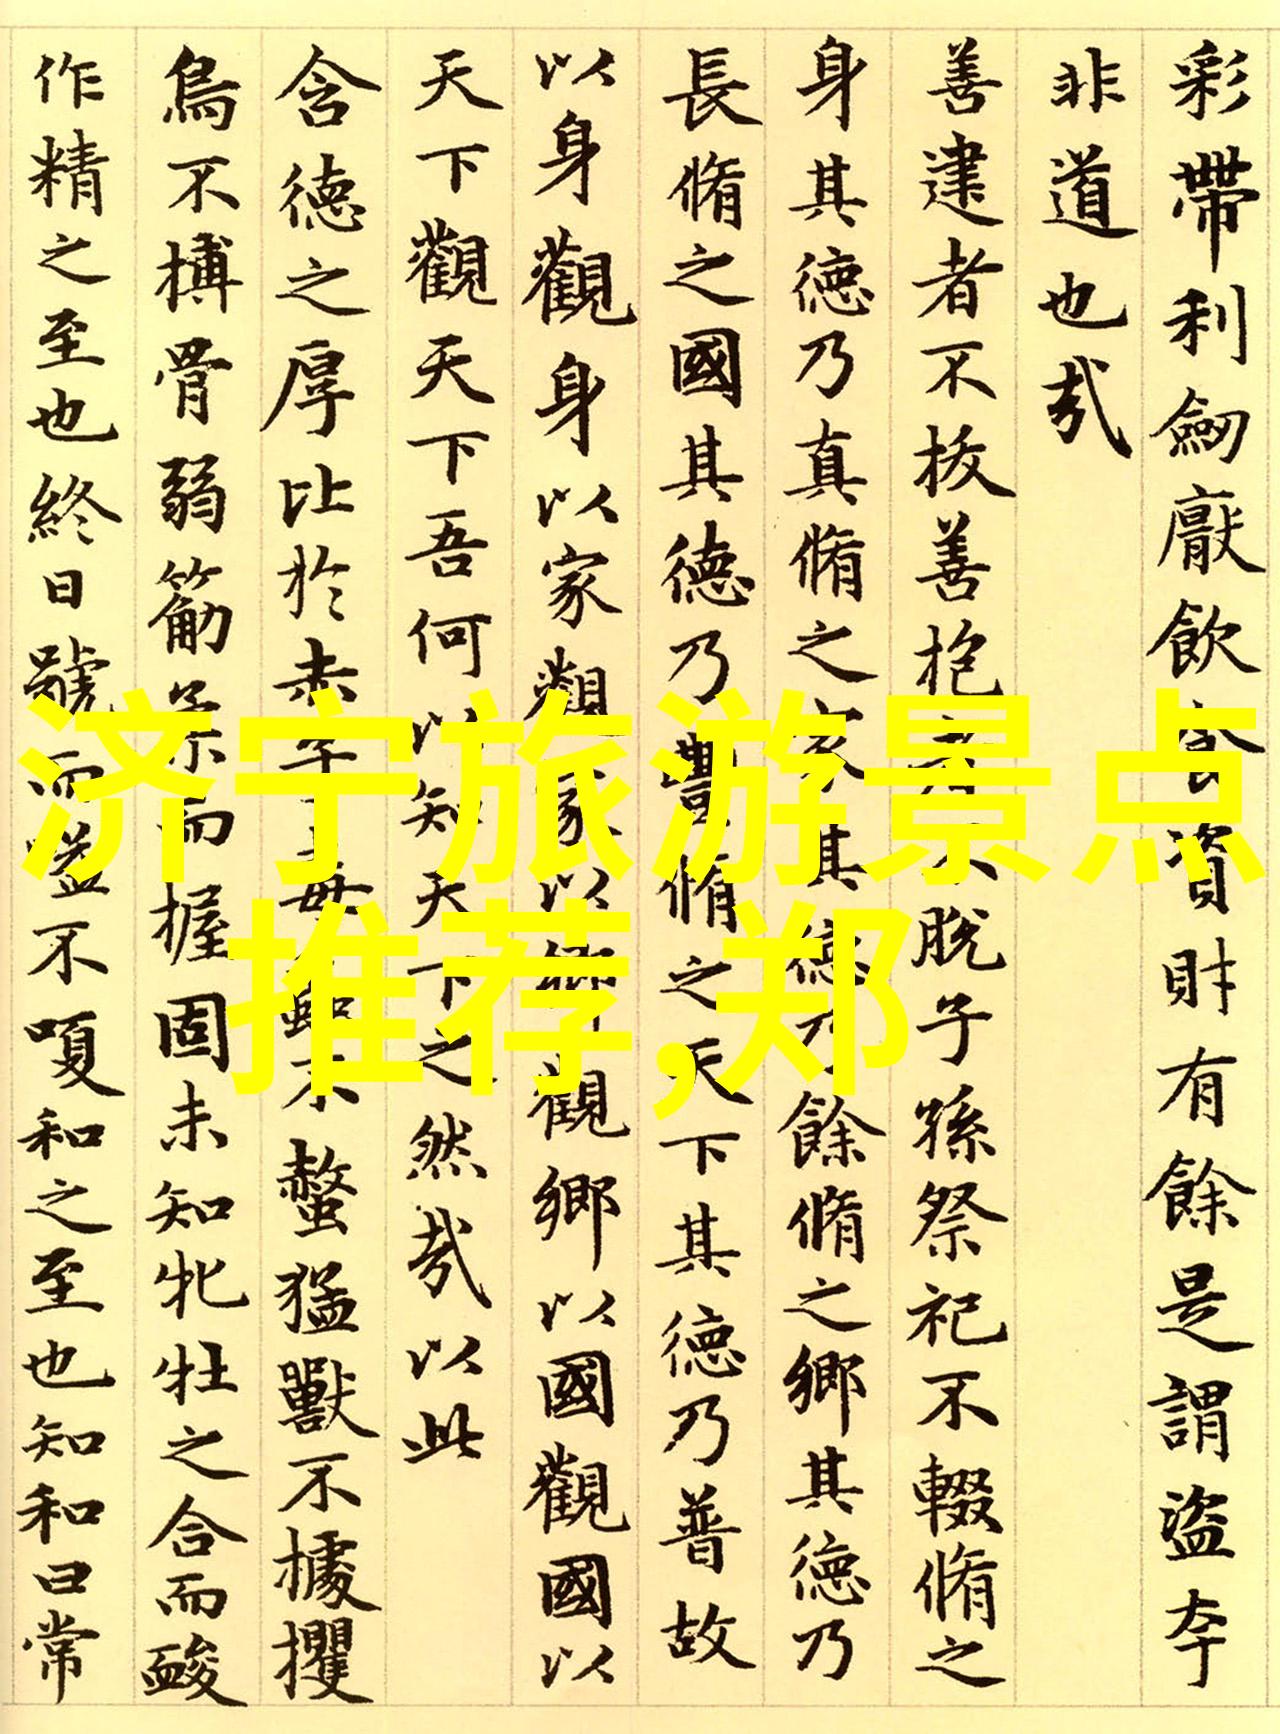 彩帶利劒厭飲食資財有餘是謂盜夸
非道也哉
善建者不拔善抱者不脫子孫祭祀不輟脩之
身其德乃真脩之家其德乃餘脩之鄉其德乃
長脩之國其德乃豐脩之天下其德乃普故
以身觀身以家觀家以鄉觀鄉以國觀國以
天下觀天下吾何以知天下之然哉以此
含德之厚比於赤子毒蟲不螫猛獸不據攫
鳥不搏骨弱筋柔而握固未知牝牡之合而䘒
作精之至也終日號而嗌不嗄和之至也知和曰常
济宁旅游景点
推荐,郑